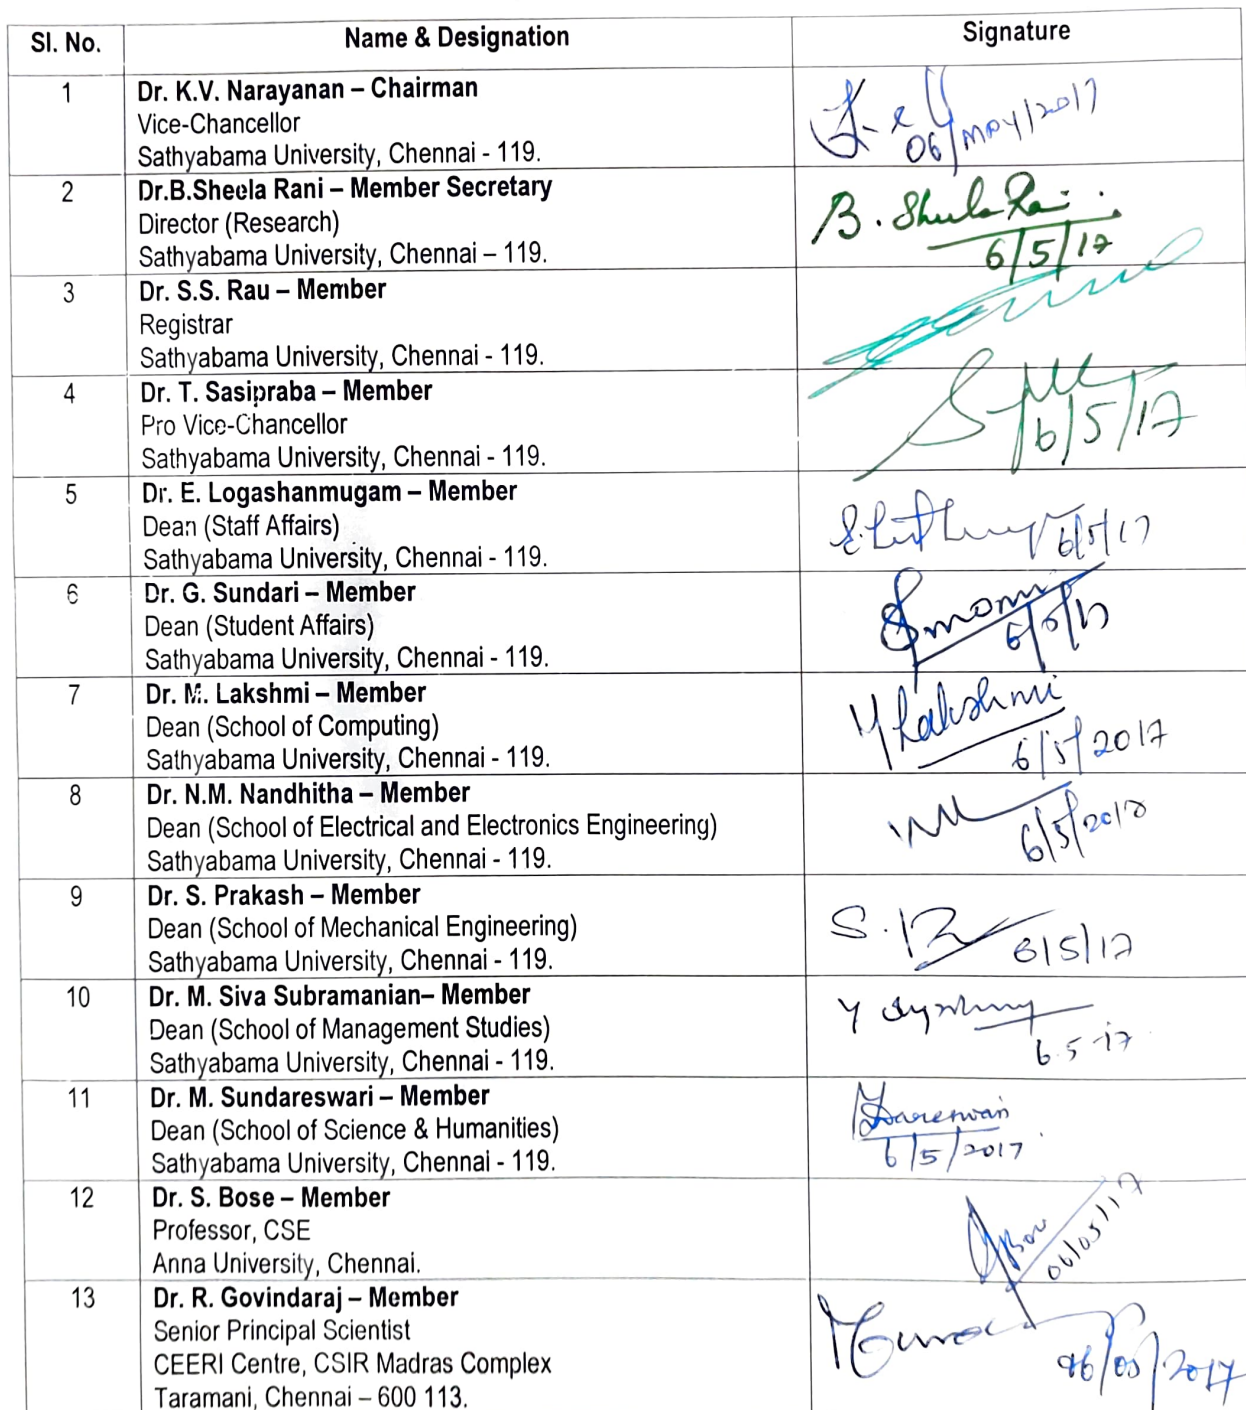 Sl. No. Name & Designation Signature
1 Dr. K.V. Narayanan – Chairman
Vice-Chancellor
Sathyabama University, Chennai - 119.
06/MAY/2017
2 Dr.B.Sheela Rani – Member Secretary
Director (Research)
Sathyabama University, Chennai – 119.
B. Sheela Rani
6/5/17
3 Dr. S.S. Rau – Member
Registrar
Sathyabama University, Chennai - 119.
4 Dr. T. Sasipraba – Member
Pro Vice-Chancellor
Sathyabama University, Chennai - 119.
6/5/17
5 Dr. E. Logashanmugam – Member
Dean (Staff Affairs)
Sathyabama University, Chennai - 119.
6/5/17
6 Dr. G. Sundari – Member
Dean (Student Affairs)
Sathyabama University, Chennai - 119.
6/5/17
7 Dr. M. Lakshmi – Member
Dean (School of Computing)
Sathyabama University, Chennai - 119.
M Lakshmi
6/5/2017
8 Dr. N.M. Nandhitha – Member
Dean (School of Electrical and Electronics Engineering)
Sathyabama University, Chennai - 119.
9 Dr. S. Prakash – Member
Dean (School of Mechanical Engineering)
Sathyabama University, Chennai - 119.
6/5/17
10 Dr. M. Siva Subramanian– Member
Dean (School of Management Studies)
Sathyabama University, Chennai - 119.
6.5-17
11 Dr. M. Sundareswari – Member
Dean (School of Science & Humanities)
Sathyabama University, Chennai - 119.
6/5/2017
12 Dr. S. Bose – Member
Professor, CSE
Anna University, Chennai.
06/05/17
13 Dr. R. Govindaraj – Member
Senior Principal Scientist
CEERI Centre, CSIR Madras Complex
Taramani, Chennai – 600 113.
06/05/2017